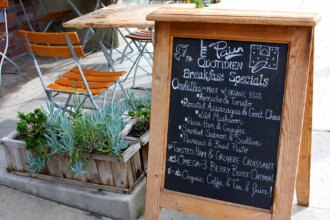 Le Pain
QUOTIDIEN
Breakfast Specials
Omelettes - MADE W/ ORGANIC EGGS
Avocado & Tomato
Roasted Asparagus & Goat Cheese
Wild Mushroom
Paris Ham & Gruyere
Smoked Salmon & Scallion
Parmesan & Basil Pesto
TOASTED HAM & GRUYERE CROISSANT
OMEGA-3 BERRY BOOST OATMEAL
Organic Coffee & Tea & Juice!